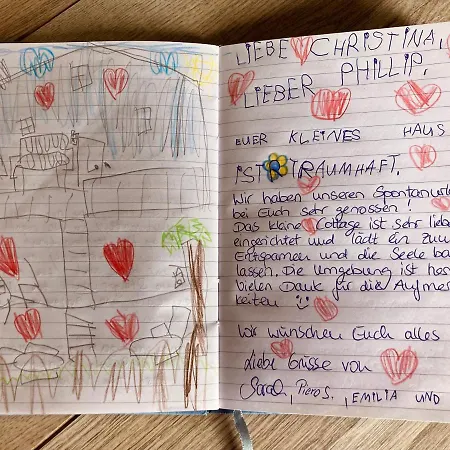 LIEBE CHRISTINA,
LIEBER PHILLIP,
EUER KLEINES HAUS
IST TRAUMHAFT.
Wir haben unseren Spontanurl
bei Euch sehr genossen!
Das kleine Cottage ist sehr liebe
eingerichtet und lädt ein zum
Entspannen und die Seele ba
lassen. Die Umgebung ist her
Vielen Dank für die Aufmer
keiten :)
Wir wünschen Euch alles
Liebe Grüsse von
Sarah, Piero S., EMILIA UND